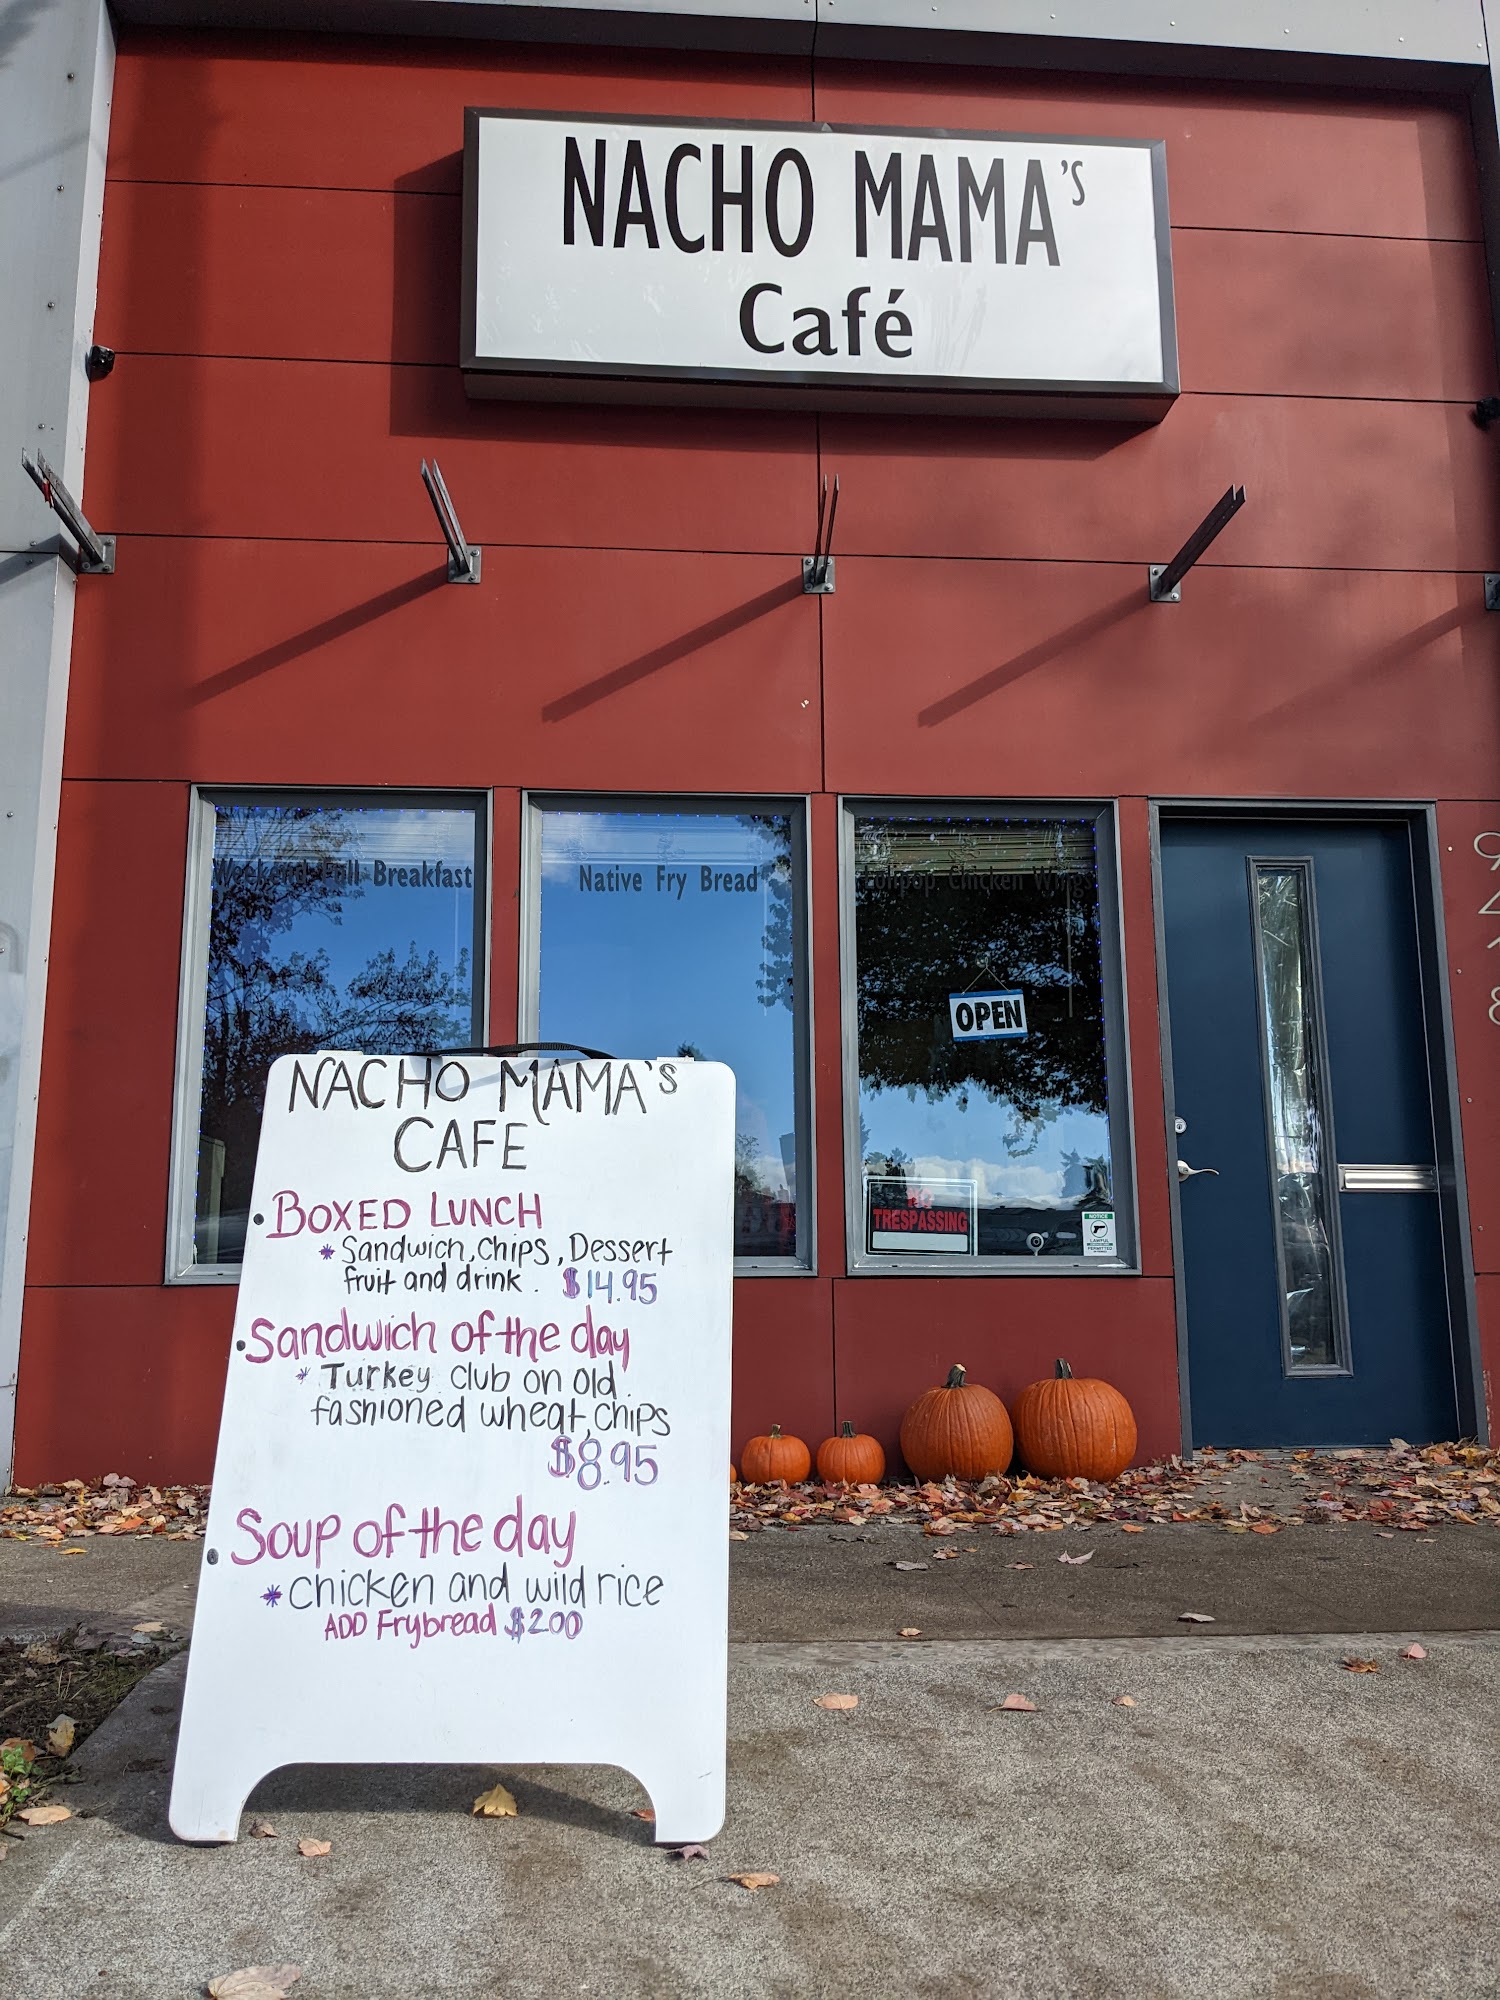 NACHO MAMA'S
Café
Weekend Full Breakfast
Native Fry Bread
Lollipop Chicken Wings
OPEN
TRESPASSING
NOTICE
LAWFUL
PERMITTED
NACHO MAMA'S
CAFE
• BOXED LUNCH
* Sandwich, Chips, Dessert
fruit and drink. $14.95
• Sandwich of the day
* Turkey club on old
fashioned wheat, chips
$8.95
• Soup of the day
* chicken and wild rice
ADD Frybread $2.00